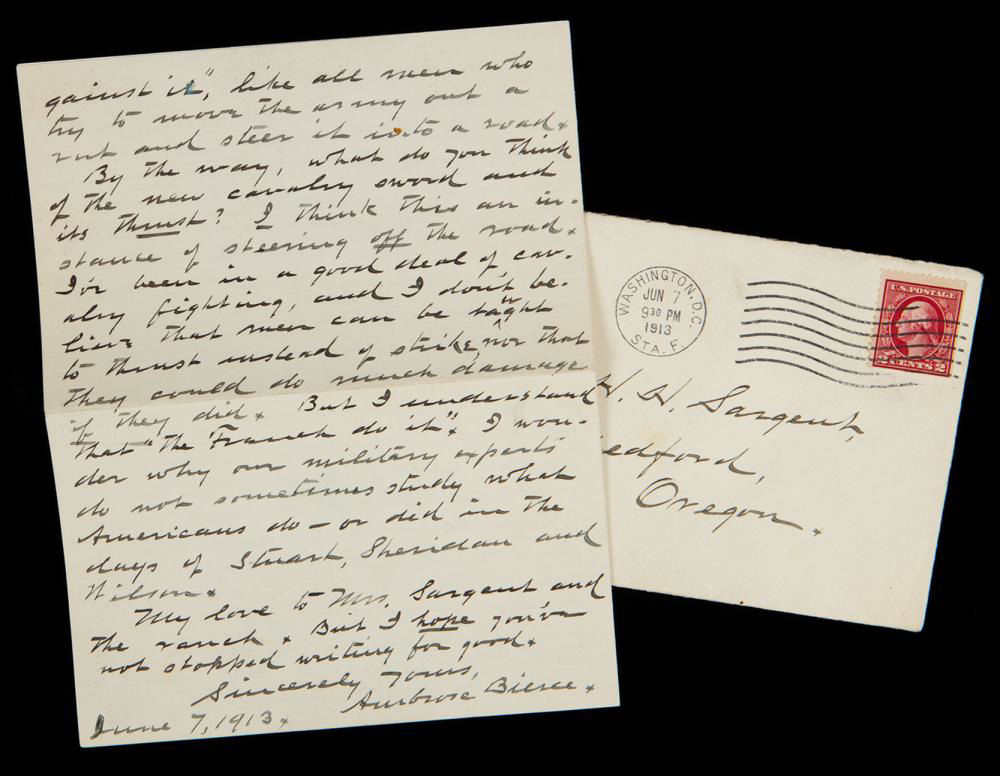 gainst it", like all men who
try to move the army out a
rut and steer it into a road.
By the way, what do you think
of the new cavalry sword and
its thrust? I think this an in-
stance of steering off the road.
I've been in a good deal of cav-
alry fighting, and I don't be-
lieve that men can be taught
to thrust instead of strike, nor that
they could do much damage
if they did. But I understand
that "the French do it". I won-
der why our military experts
do not sometimes study what
Americans do — or did in the
days of Stuart, Sheridan and
Wilson.
My love to Mrs. Sargent and
the ranch. But I hope you've
not stopped writing for good.
Sincerely yours,
Ambrose Bierce.
June 7, 1913.
WASHINGTON, D.C.
JUN 7
9 30 PM
1913
STA. F.
U.S. POSTAGE
2 CENTS 2
H. H. Sargent,
edford,
Oregon.